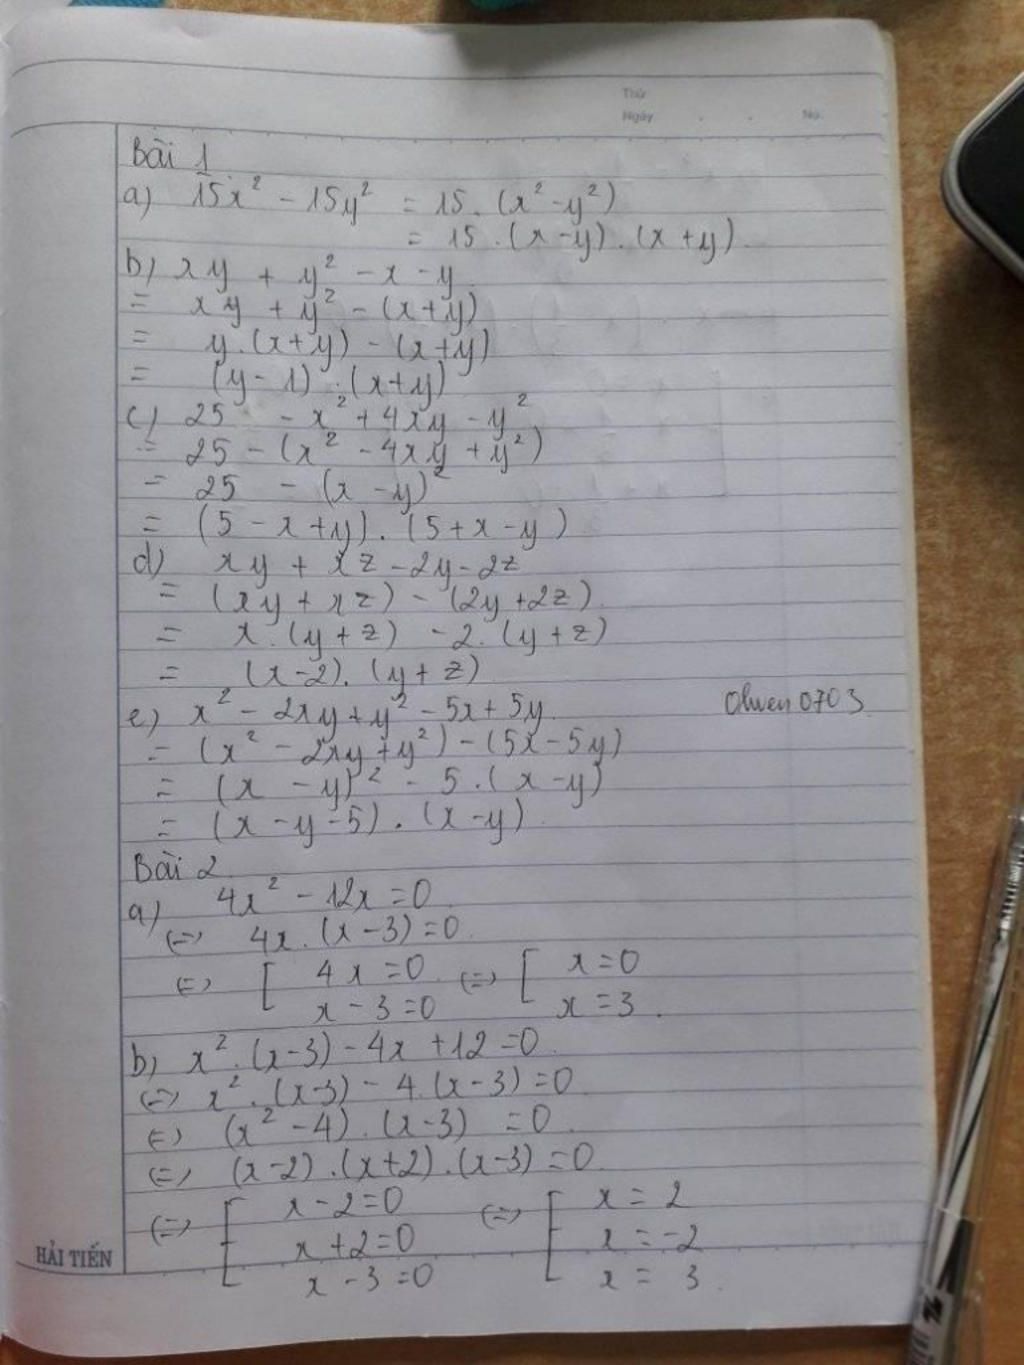 Thứ
Ngày . . No.
Bài 1
a) 15x² - 15y² = 15. (x² - y²)
= 15 . (x - y) . (x + y)
b) xy + y² - x - y
= xy + y² - (x + y)
= y. (x + y) - (x + y)
= (y - 1) . (x + y)
c) 25 - x² + 4xy - y²
= 25 - (x² - 4xy + y²)
= 25 - (x - y)²
= (5 - x + y) . (5 + x - y)
d) xy + xz - 2y - 2z
= (xy + xz) - (2y + 2z)
= x. (y + z) - 2. (y + z)
= (x - 2). (y + z)
e) x² - 2xy + y² - 5x + 5y
Olwen0703
= (x² - 2xy + y²) - (5x - 5y)
= (x - y)² - 5 . (x - y)
= (x - y - 5) . (x - y)
Bài 2
a) 4x² - 12x = 0
(=) 4x . (x - 3) = 0
(=) [ 4x = 0 (=) [ x = 0
x - 3 = 0 x = 3.
b) x² . (x - 3) - 4x + 12 = 0
(=) x² . (x - 3) - 4. (x - 3) = 0
(=) (x² - 4) . (x - 3) = 0
(=) (x - 2) . (x + 2) . (x - 3) = 0
(=) [ x - 2 = 0 (=) [ x = 2
x + 2 = 0 x = -2
x - 3 = 0 x = 3.
HẢI TIẾN